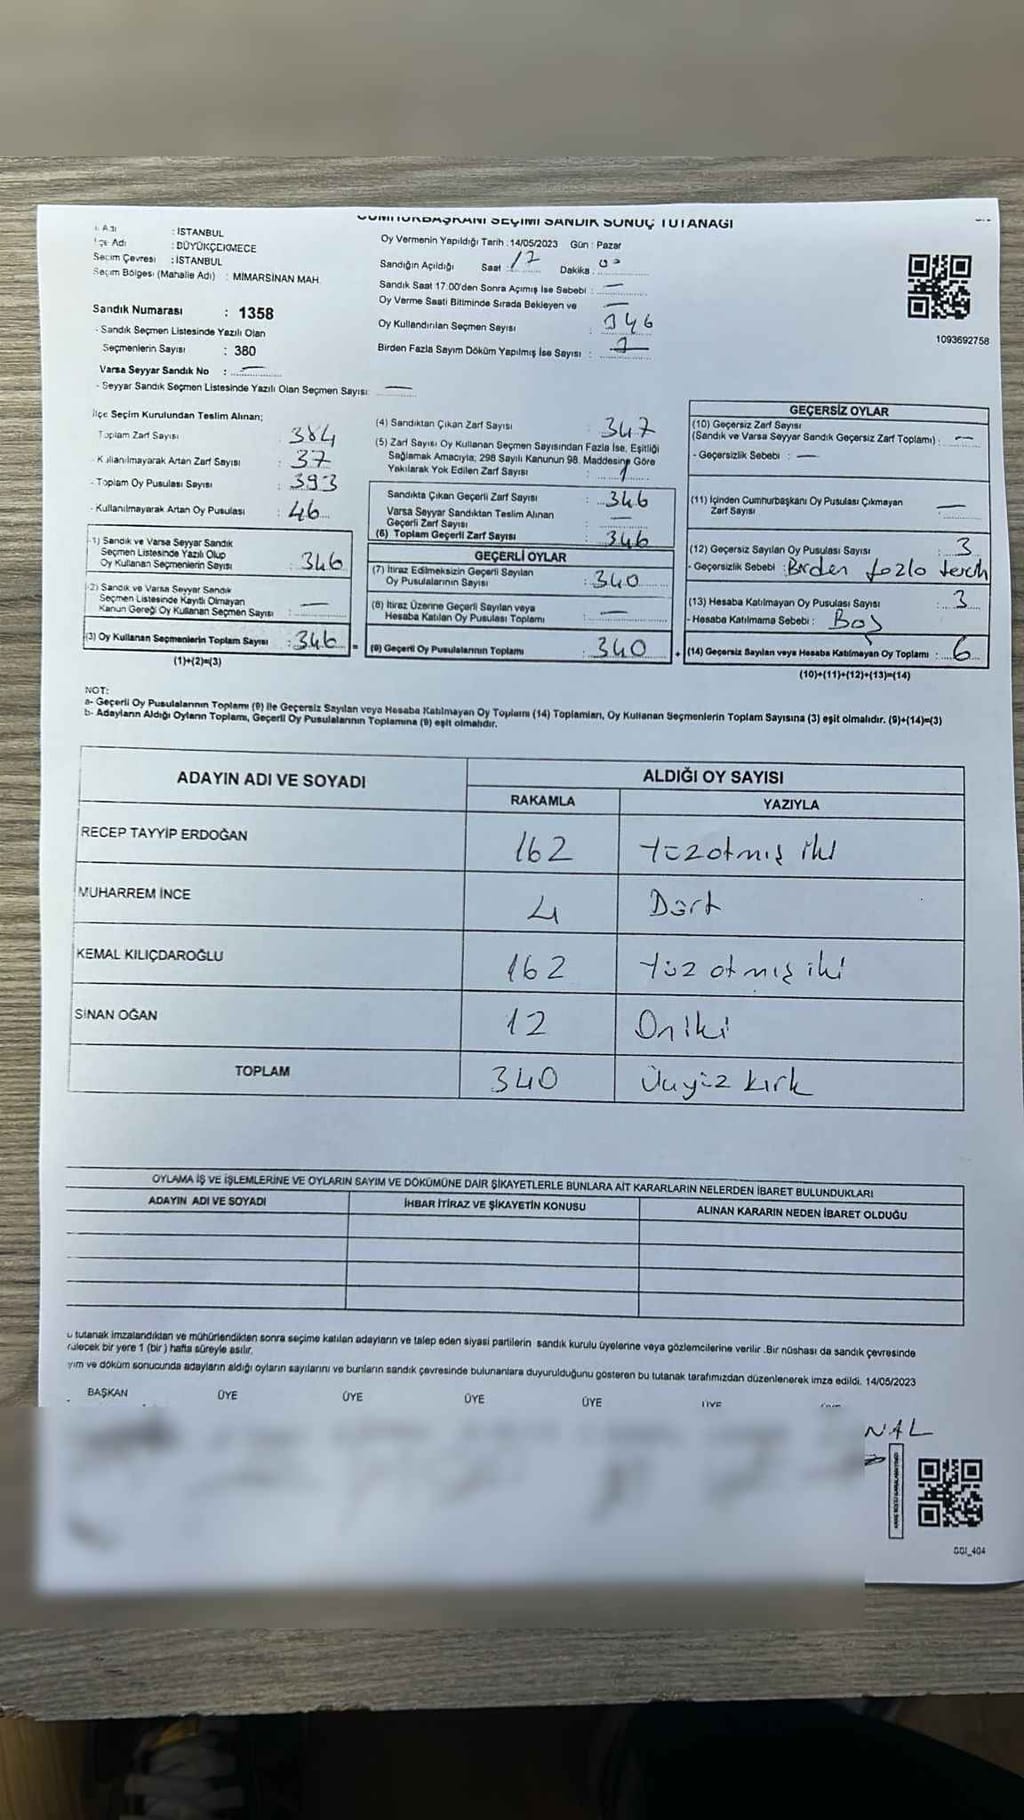 CUMHURBAŞKANI SEÇİMİ SANDIK SONUÇ TUTANAĞI
Adı : İSTANBUL
Adı : BÜYÜKÇEKMECE
Seçim Çevresi : İSTANBUL
Seçim Bölgesi (Mahalle Adı) : MİMARSİNAN MAH
Sandık Numarası : 1358
- Sandık Seçmen Listesinde Yazılı Olan
Seçmenlerin Sayısı : 380
Varsa Seyyar Sandık No : —
- Seyyar Sandık Seçmen Listesinde Yazılı Olan Seçmen Sayısı: —
Oy Vermenin Yapıldığı Tarih : 14/05/2023 Gün : Pazar
Sandığın Açıldığı Saat : 17 Dakika : 00
Sandık Saat 17:00'den Sonra Açımış İse Sebebi : —
Oy Verme Saati Bitiminde Sırada Bekleyen ve —
Oy Kullandırılan Seçmen Sayısı : 346
Birden Fazla Sayım Döküm Yapılmış İse Sayısı :
1093692758
İlçe Seçim Kurulundan Teslim Alınan;
Toplam Zarf Sayısı : 384
- Kullanılmayarak Artan Zarf Sayısı : 37
- Toplam Oy Pusulası Sayısı : 393
- Kullanılmayarak Artan Oy Pusulası : 46
1) Sandık ve Varsa Seyyar Sandık
Seçmen Listesinde Yazılı Olup
Oy Kullanan Seçmenlerin Sayısı : 346
2) Sandık ve Varsa Seyyar Sandık
Seçmen Listesinde Kayıtlı Olmayan
Kanun Gereği Oy Kullanan Seçmen Sayısı : —
(3) Oy Kullanan Seçmenlerin Toplam Sayısı : 346
(1)+(2)=(3)
(4) Sandıktan Çıkan Zarf Sayısı : 347
(5) Zarf Sayısı Oy Kullanan Seçmen Sayısından Fazla İse, Eşitliği
Sağlamak Amacıyla; 298 Sayılı Kanunun 98. Maddesine Göre
Yakılarak Yok Edilen Zarf Sayısı : 1
Sandıkta Çıkan Geçerli Zarf Sayısı : 346
Varsa Seyyar Sandıktan Teslim Alınan
Geçerli Zarf Sayısı : —
(6) Toplam Geçerli Zarf Sayısı : 346
GEÇERLİ OYLAR
(7) İtiraz Edilmeksizin Geçerli Sayılan
Oy Pusulalarının Sayısı : 340
(8) İtiraz Üzerine Geçerli Sayılan veya
Hesaba Katılan Oy Pusulası Toplamı : —
= (9) Geçerli Oy Pusulalarının Toplamı : 340
GEÇERSİZ OYLAR
(10) Geçersiz Zarf Sayısı
(Sandık ve Varsa Seyyar Sandık Geçersiz Zarf Toplamı) : —
- Geçersizlik Sebebi : —
(11) İçinden Cumhurbaşkanı Oy Pusulası Çıkmayan
Zarf Sayısı —
(12) Geçersiz Sayılan Oy Pusulası Sayısı : 3
- Geçersizlik Sebebi : Birden fazla tercih
(13) Hesaba Katılmayan Oy Pusulası Sayısı : 3
- Hesaba Katılmama Sebebi : Boş
+ (14) Geçersiz Sayılan veya Hesaba Katılmayan Oy Toplamı : 6
(10)+(11)+(12)+(13)=(14)
NOT:
a- Geçerli Oy Pusulalarının Toplamı (9) ile Geçersiz Sayılan veya Hesaba Katılmayan Oy Toplamı (14) Toplamları, Oy Kullanan Seçmenlerin Toplam Sayısına (3) eşit olmalıdır. (9)+(14)=(3)
b- Adayların Aldığı Oyların Toplamı, Geçerli Oy Pusulalarının Toplamına (9) eşit olmalıdır.
ADAYIN ADI VE SOYADI ALDIĞI OY SAYISI
RAKAMLA YAZIYLA
RECEP TAYYİP ERDOĞAN 162 Yüzatmış iki
MUHARREM İNCE 4 Dört
KEMAL KILIÇDAROĞLU 162 Yüz atmış iki
SİNAN OĞAN 12 Oniki
TOPLAM 340 Üçyüz kırk
OYLAMA İŞ VE İŞLEMLERİNE VE OYLARIN SAYIM VE DÖKÜMÜNE DAİR ŞİKAYETLERLE BUNLARA AİT KARARLARIN NELERDEN İBARET BULUNDUKLARI
ADAYIN ADI VE SOYADI İHBAR İTİRAZ VE ŞİKAYETİN KONUSU ALINAN KARARIN NEDEN İBARET OLDUĞU
u tutanak imzalandıktan ve mühürlendikten sonra seçime katılan adayların ve talep eden siyasi partilerin sandık kurulu üyelerine veya gözlemcilerine verilir .Bir nüshası da sandık çevresinde
rülecek bir yere 1 (bir ) hafta süreyle asılır.
yım ve döküm sonucunda adayların aldığı oyların sayılarını ve bunların sandık çevresinde bulunanlara duyurulduğunu gösteren bu tutanak tarafımızdan düzenlenerek imza edildi. 14/05/2023
BAŞKAN ÜYE ÜYE ÜYE ÜYE ÜYE
NAL